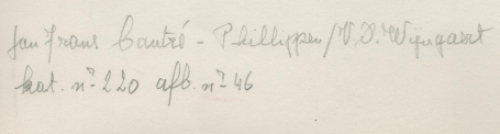 Jan Frans Cantré - Phillippen/V.D. Wijngaert
kat. nr. 220 afb. nr. 46